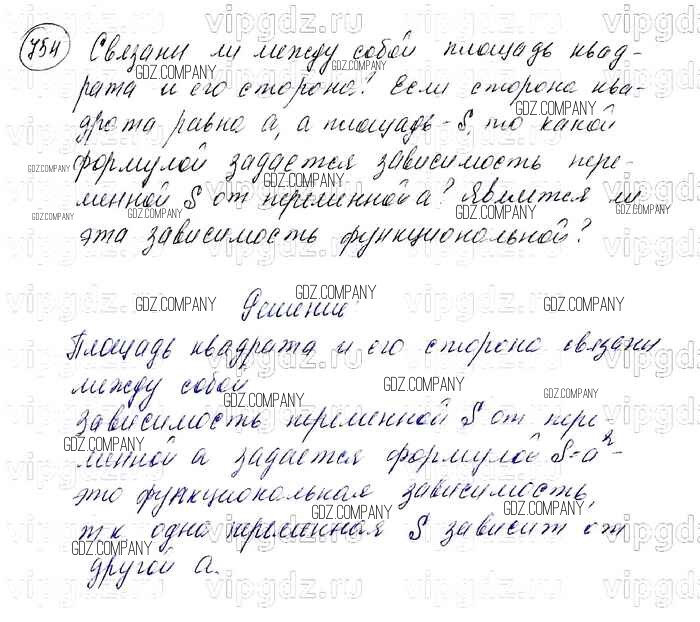 754 Связаны ли между собой площадь квад-
рата и его сторона? Если сторона ква-
драта равна a, а площадь - S, то какой
формулой задаётся зависимость пере-
менной S от переменной a? Является ли
эта зависимость функциональной?
Решение:
Площадь квадрата и его сторона связаны
между собой
Зависимость переменной S от пере-
менной a задаётся формулой S=a² -
это функциональная зависимость,
т к одна переменная S зависит от
другой a.